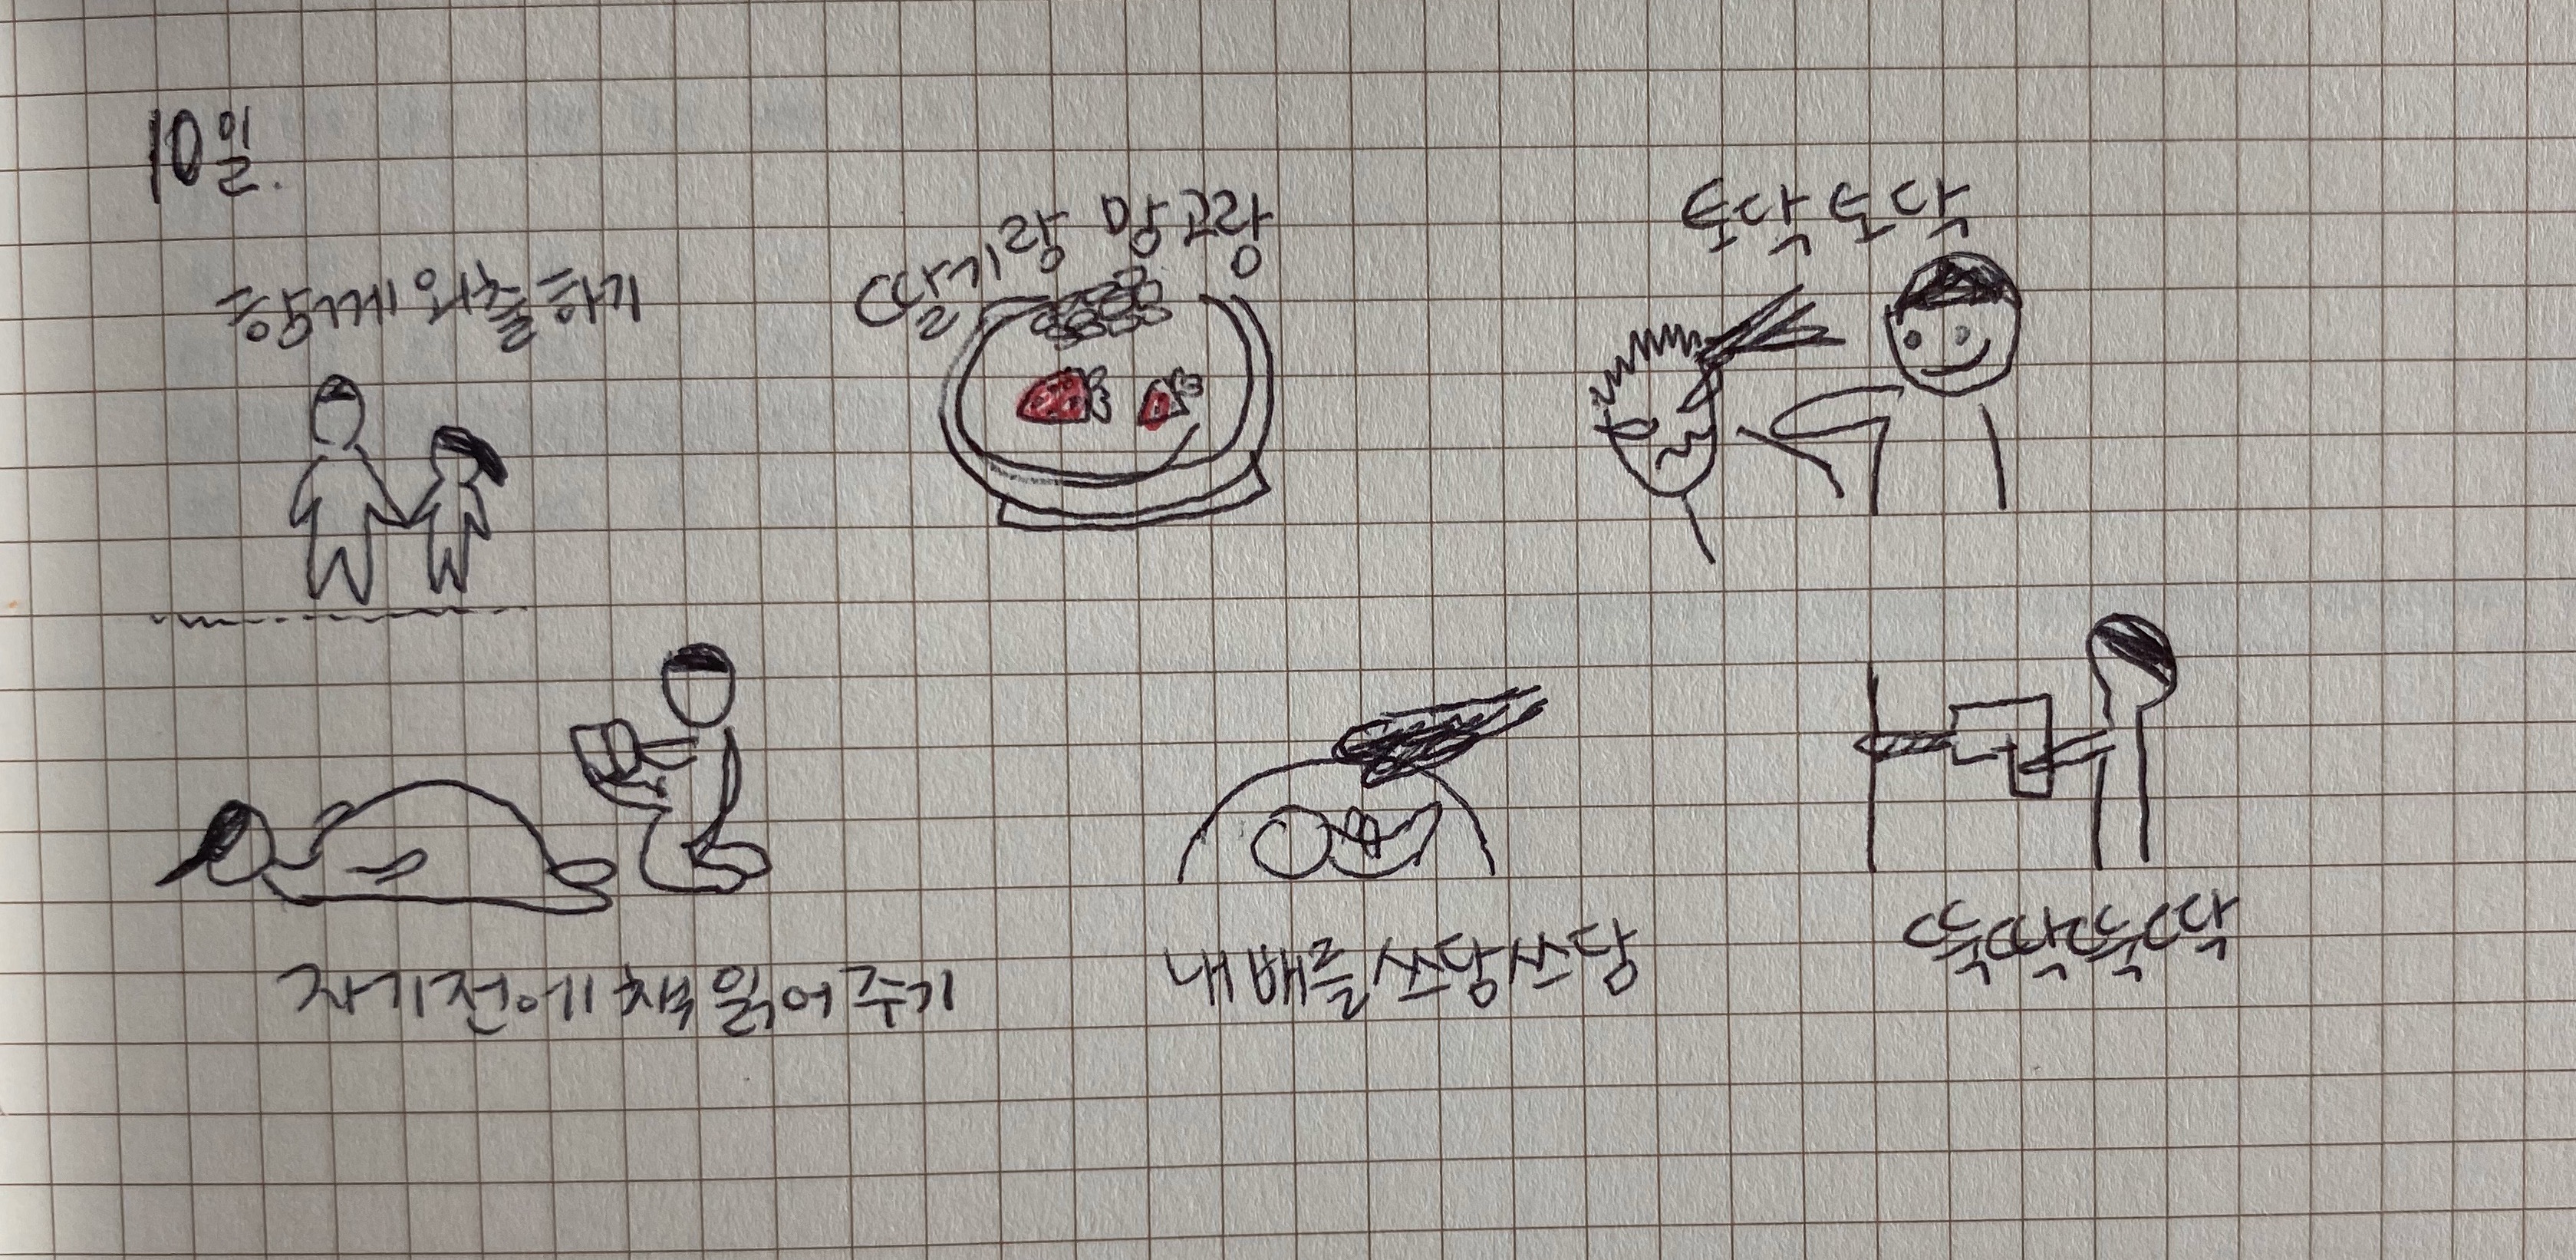 10일.
함께 외출하기
딸기랑 망고랑
토닥토닥
자기전에 책 읽어 주기
내 배를 쓰담쓰담
뚝딱뚝딱